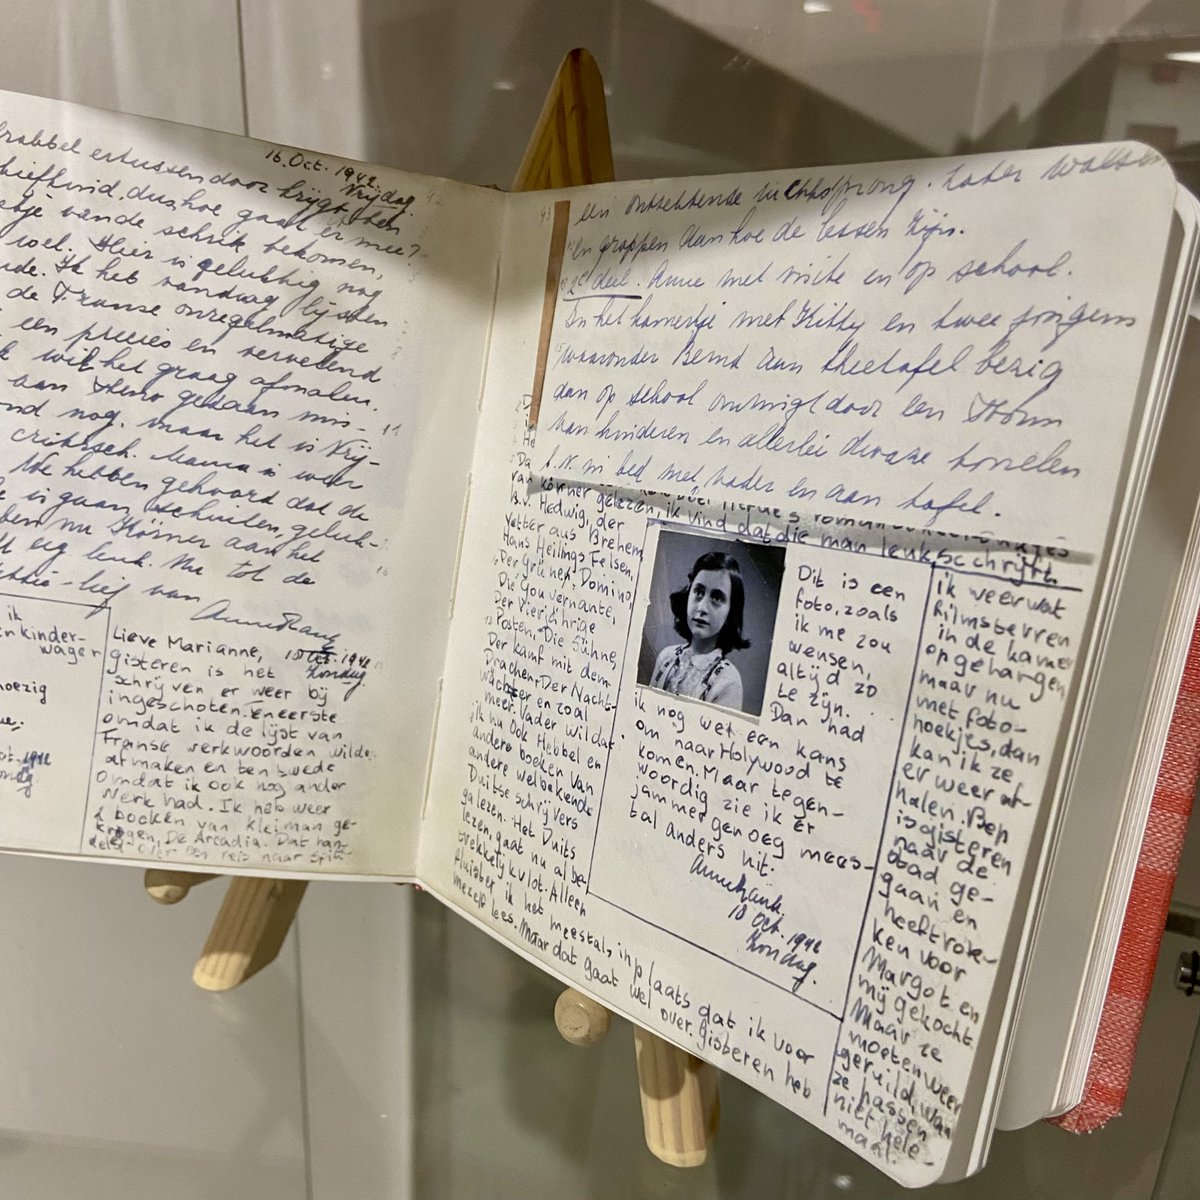 16. Oct. 1942
Vrijdag.
krabbel ertussen door krijgt. Ben
hiefkind, dus hoe gaat er mee?
van de schrik bekomen,
Hier is gelukkig nog
Ik heb vandaag lijsten
de Franse onregelmatige
een precies en vervelend
wil het graag afmaken.
aan gedaan
nog. maar het is
critisch. Mama is weer
We hebben gehoord dat de
is gaan schuilen, geluk-
nu Körner aan het
erg leuk. Nu tot de
lief van
Anne Frank
ik
kinder-
wagen
Lieve Marianne, 18 Oct. 1942
Zondag
gisteren is het
schrijven er weer bij
ingeschoten. Ten eerste
omdat ik de lijst van
Franse werkwoorden wilde
afmaken en ten twede
omdat ik ook nog ander
werk had. Ik heb weer
2 boeken van Kleiman ge-
kregen, De Arcadia. Dat han-
delt over een reis naar Spits-
43
een ontzettende luchtsprong. Later walsen
en grappen aan hoe de lessen zijn.
2e deel. Anne met visite en op school.
In het kamertje met Kitty en twee jongens
waaronder Bernd aan theetafel bezig
dan op school omringd door een drom
van kinderen en allerlei dwaze tonelen
b.v. in bed met vader en aan tafel.
van Körner gelezen, ik vind dat die man leuk schrijft.
B.v. Hedwig, der
Vetter aus Brehem,
Hans Heilings Felsen,
Der grüne Domino,
Die Gouvernante,
Der Vierjährige
Posten, Die Sühne,
Der Kamf mit dem
Drachen, Der Nacht-
wächter en zoal
meer. Vader wil dat
ik nu ook Hebbel en
andere boeken van
andere welbekende
Duitse schrijvers
ga lezen. Het Duits
lezen, gaat nu al be-
trekkelijk vlot. Alleen
fluister ik het meestal, in plaats dat ik voor
mezelf lees. Maar dat gaat wel over. Gisteren heb
Dit is een
foto, zoals
ik me zou
wensen,
altijd zo
te zijn.
Dan had
ik nog wel een kans
om naar Holywood te
komen. Maar tegen-
woordig zie ik er
jammer genoeg mees-
tal anders uit.
Anne Frank.
18 Oct. 1942
Zondag.
ik weer wat
filmsterren
in de kamer
opgehangen
maar nu
met foto-
hoekjes, dan
kan ik ze
er weer af-
halen. Bep
is gisteren
naar de
stad ge-
gaan en
heeft rok-
ken voor
Margot en
mij gekocht
Maar ze
moeten weer
geruild, want
ze passen
niet hele-
maal.